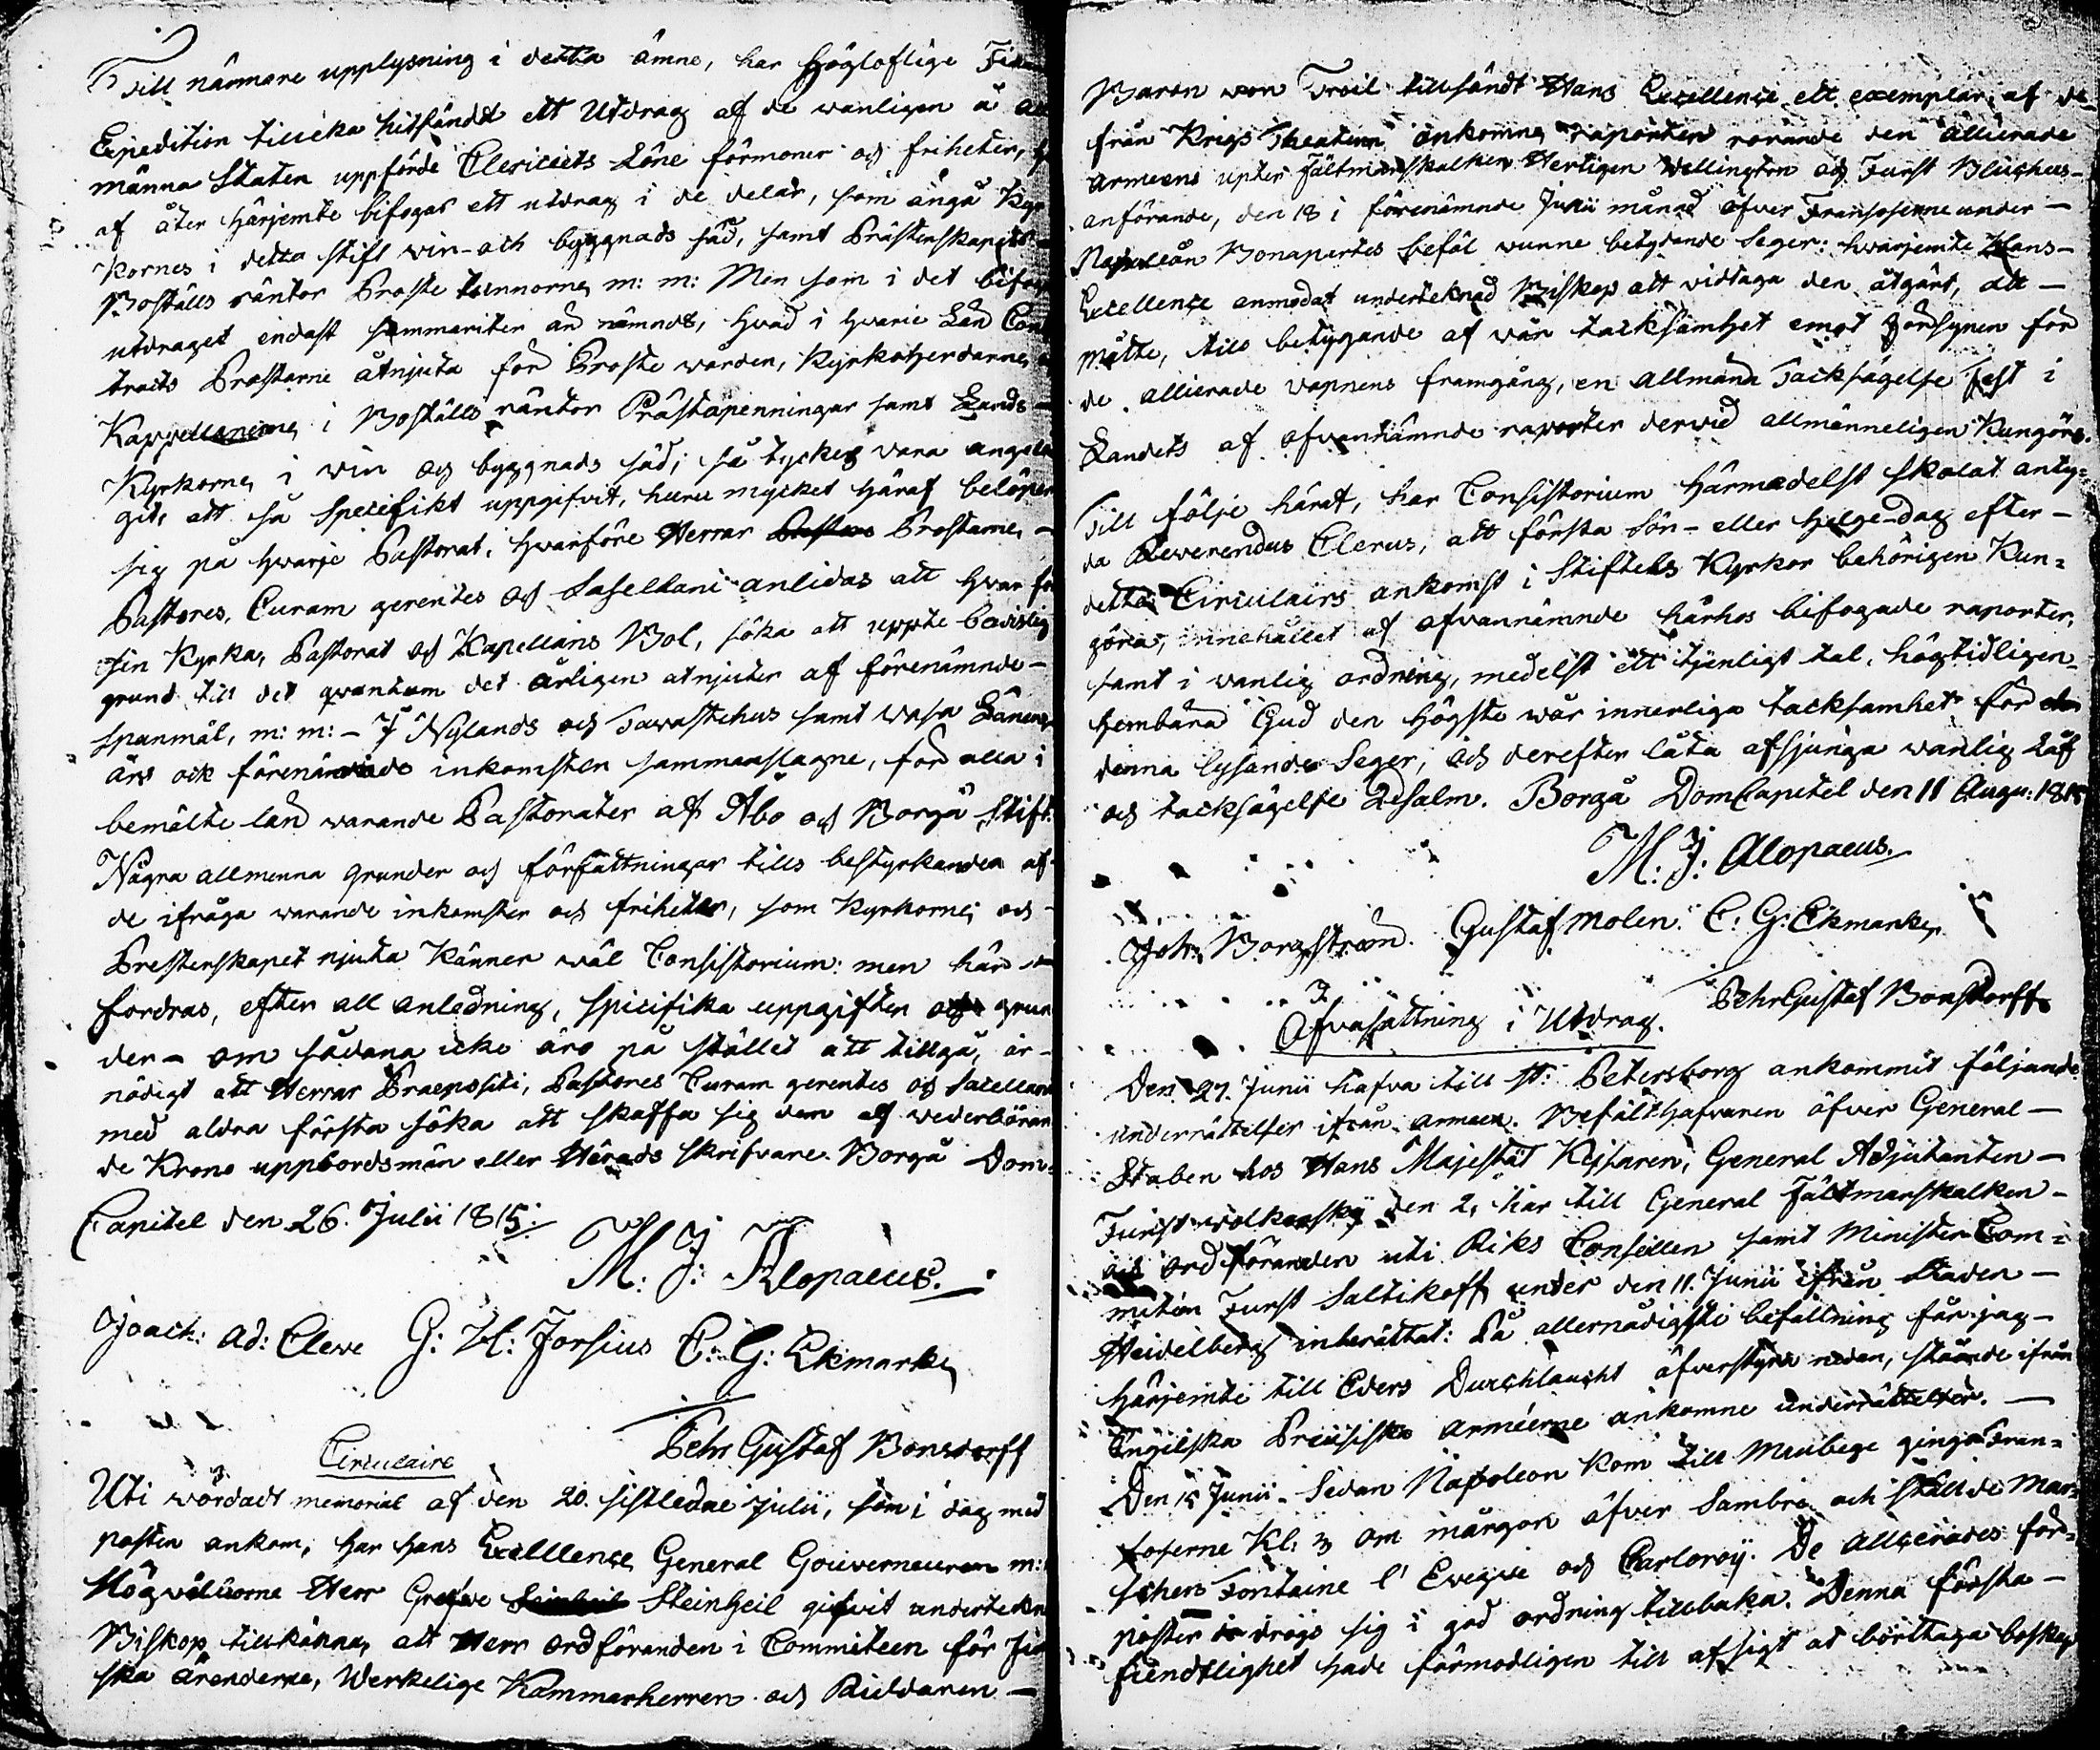 Till närmare upplysning i detta ämne, har Högloflige
Expedition tillika hitsändt ett Utdrag af de wanligen å
männa Staten uppförde Clericiets Löne förmoner och friheter,
af åter härjemte bifogas ett utdrag i de delar, som angå Kyr
kornes i detta stift win- och byggnads säd, samt Prästerskapets
Boställs räntor Proste tunnorne m: m: Men som i det bifog
utdraget endast summariter än nämndt, hvad i hvarie Län Con
tracts Prostarne åtnjuta för Proste wården, Kyrkoherdarne,
Kappellanerne, i Boställs räntor Prästapenningar samt Lands-
Kyrkorne, i win och byggnads säd; så tyckes vara angelä
git, att så specifikt uppgifvit, huru mycket häraf belöper
sig på hwarje Pastorat, hvarföre Herrar Prostarne, -
Pastores, Curam gerentes och Sasellani anlidas att hvar för
sin Kyrka, Pastorat och Kapellans Bol, söka att uppte bevislig
grund till det qwantum det årligen atnjuter af förenämnde -
spanmål, m: m: - I Nylands och Tawastehus samt wasa Länens
äro ock förenämnde inkomster sammanslagne, för alla i
bemälte län warande Pastorater af Åbo och Borgå Stift.
Några allmenna grunder och författningar tills bestyrkanden af
de ifråga warande inkomster och friheter, som Kyrkorne, och -
Presterskapet njuta Känner wäl Consistorium: men här
fordras, efter all anledning, spicifika uppgifter och grun
der - om sådana icke äro på stället att tillgå, är -
nödigt att Herrar Praepositi, Pastores Curam gerentes och Sacellani
med aldra första söka att skaffa sig dem af wederböran
de Krono uppbordsmän eller Härads skrifvare. Borgå Dom=
Capitel den 26. Julii 1815.
M. J: Alopaeus.
Joach: Ad: Cleve G: H: Forsius C: G: Ekmark
Pehr Gustaf Bonsdorff
Circulaire
Uti wördadt memorial af den 20. sistledne Julii, som i dag med
posten ankom, har hans Excelllence General Gouverneuren m:
Högvälborne Herr Grefwe Steinheil gifvit undertekn
Biskop tillkänna, att Herr ordföranden i Commiteen för Fin
ska ärenderne, Werkelige Kammarherren och Riddaren -
Baron von Troil tillsändt Hans Excellençe ett exemplar af de
från Krigs Theatern ankomne raporter rörande den allierade
armeens under Fältmarskalken Hertigen Wellington och Furst Blüchers -
anförande, den 18 i förenämnde Junii månad öfver Fransoserne under -
Napoleån Bonapartes befäl wunne betydande Seger: hwarjemte Hans -
Excellençe anmodat underteknad Biskop att vidtaga den åtgärt, att -
måtte, till betygande af vår tacksamhet emot Försynen för
de allierade vapnens framgång, en allmänn Tacksägelse Fest i
Landets af ofvannämnde raporter dervid allmänneligen Kungöra.
Till följe häraf, har Consistorium härmedelst skolat anty=
da Reverendus Clerus, att första Sön- eller helge-dag efter -
detta Circulairs ankomst i Stiftets Kyrkor behörigen Kun=
göra, innehållet af ofvannämnde härhos bifogade raporter,
samt i wanlig ordning, medelst ett tjenligt tal, högtidligen
hembära Gud den Högste wår innerliga tacksamhet för
denna lysande Seger, och derefter låta afsjunga wanlig Låf
och tacksägelse Psalm. Borgå DomCapitel den 11 Augu: 1815
M: J: Alopaeus.
Joh: Borgström. Gustaf Molen. C. G: Ekmark
Pehr Gustaf Bonsdorff
Öfvasättning i Utdrag.
Den 27. Junii hafva till St: Petersborg ankommit följande
underrättelser ifrån armeen. Befälthafvaren öfver General -
Staben hos Hans Majestät Kejsaren, General Adjutanten -
Furst Wolkonsky den 2, har till General Fältmarskalken -
och ordföranden uti Riks Conseillen samt Minister Com=
mitén Furst Saltikoff under den 11. Junii ifrån Staden -
Heidelberg inberättat: På allernådigste befallning får jag -
härjemte till Eders Durchlaucht öfverstyra nedan, stående ifrån
Engelska Preüsiska arméerne ankomne underrättelser. -
Den 15 Junii. Sedan Napoleon kom till Maubege gingo Fran=
soserne Kl. 3 om mårgon öfver Sambre och ställde Mar=
schen Fontaine l' Eveque och Carleroÿ. De allierades för=
poster drogo sig i god ordning tillbaka. Denna första -
fiendtlighet hade förmodligen till afsigt at borttaga boskap